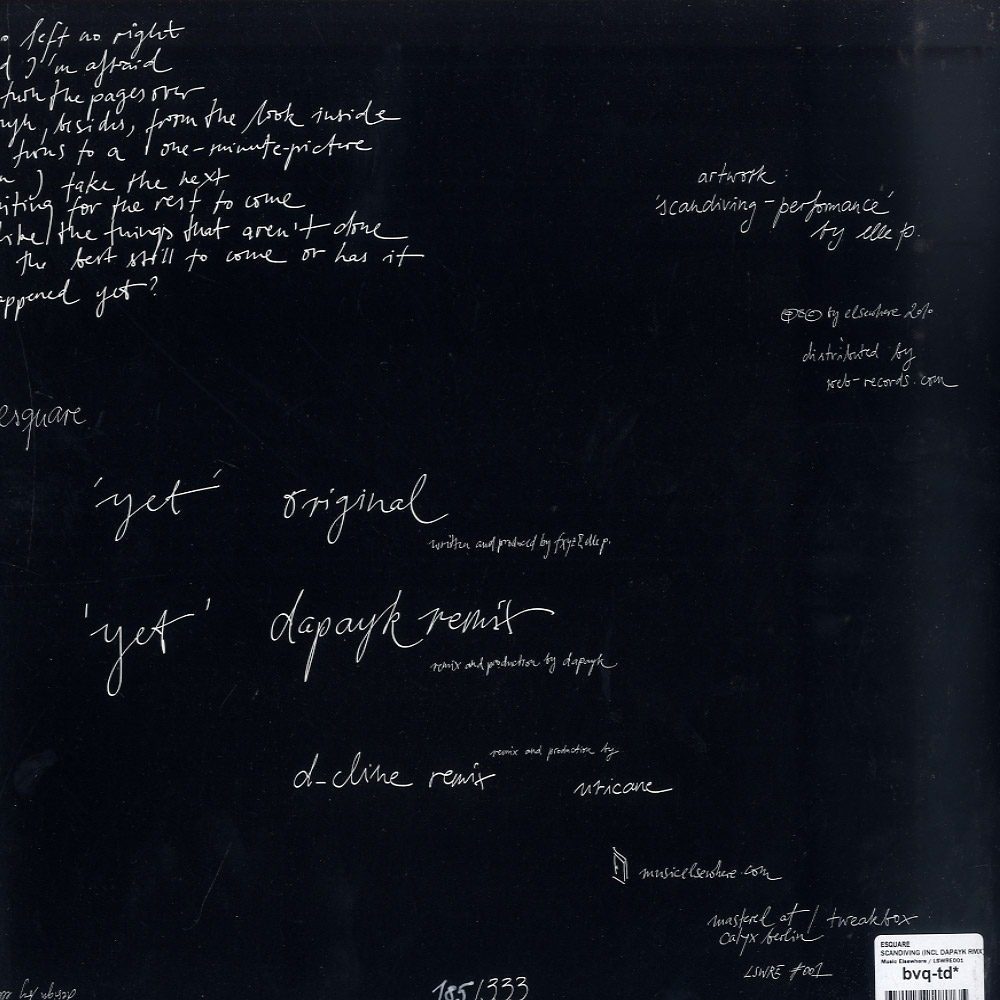 left no right
I'm afraid
turn the pages over
besides, from the look inside
turns to a one-minute-picture
I take the next
waiting for the rest to come
like the things that aren't done
the best still to come or has it
happened yet?
artwork :
'scandiving - performance'
by elle p.
by elsewhere 2010
distributed by
web-records.com
esquare
'yet' original
written and produced by fxyz & elle p.
'yet' dapayk remix
remix and production by dapayk
remix and production by
d_cline remix
uricane
musicelsewhere.com
mastered at / tweakbox
calyx berlin
LSWRE #001
185/333
ESQUARE
SCANDIVING (INCL DAPAYK RMX
Music Elsewhere / LSWRE001
bvq-td*